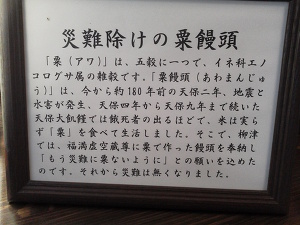 災難除けの粟饅頭
「粟(アワ)」は、五穀に一つで、イネ科エノ
コログサ属の雑穀です。「粟饅頭(あわまんじゅ
う)」は、今から約180年前の天保二年、地震と
水害が発生、天保四年から天保九年まで続いた
天保大飢饉では餓死者の出るほどで、米は実ら
ず「粟」を食べて生活しました。そこで、柳津
では、福満虚空蔵尊に粟で作った饅頭を奉納し
「もう災難に粟ないように」との願いを込めた
のです。それから災難は無くなりました。